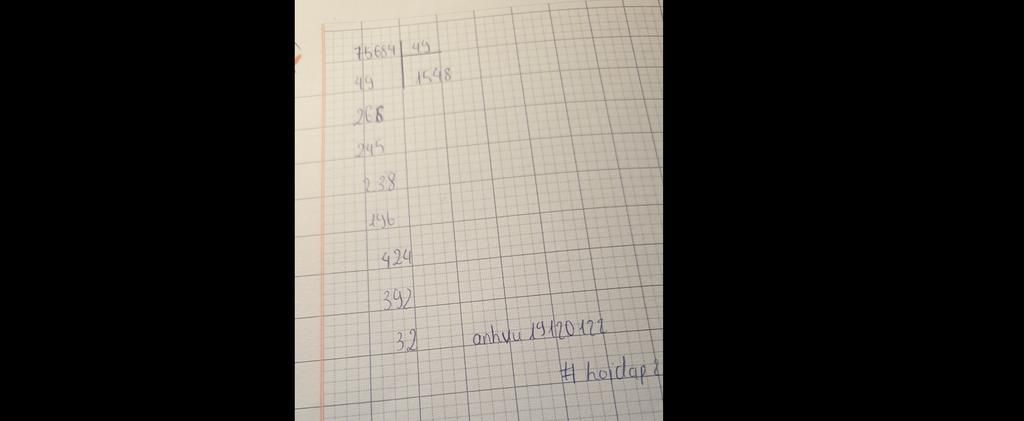 75684 49
49 1548
266
245
238
196
424
392
32 anhvu19120122
# hoidap